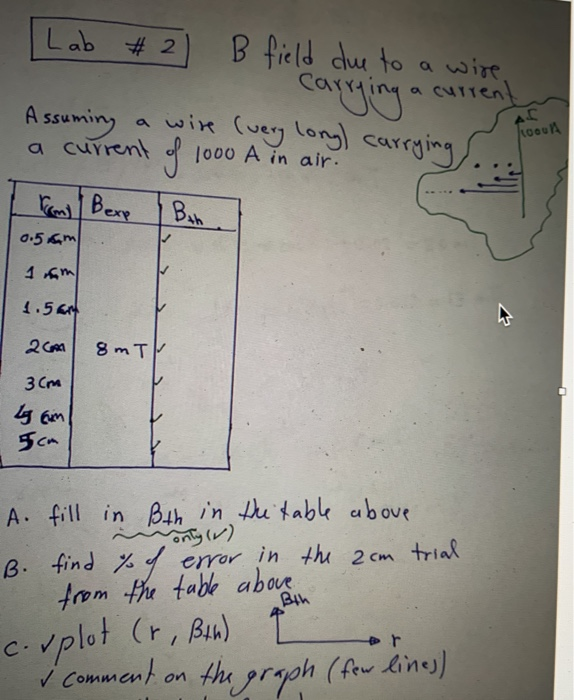 Lab # 2
B field due to a wire
carrying a current
Assuming a wire (very long) carrying
a current of 1000 A in air.
I
1000A
r(cm) Bexp Bth
0.5 cm ✓
1 cm ✓
1.5 cm ✓
2cm 8 mT ✓
3cm ✓
4 cm ✓
5cm ✓
A. fill in Bth in the table above
only (✓)
B. find % of error in the 2 cm trial
from the table above
Bth
r
C. ✓ plot (r, Bth)
✓ comment on the graph (few lines)